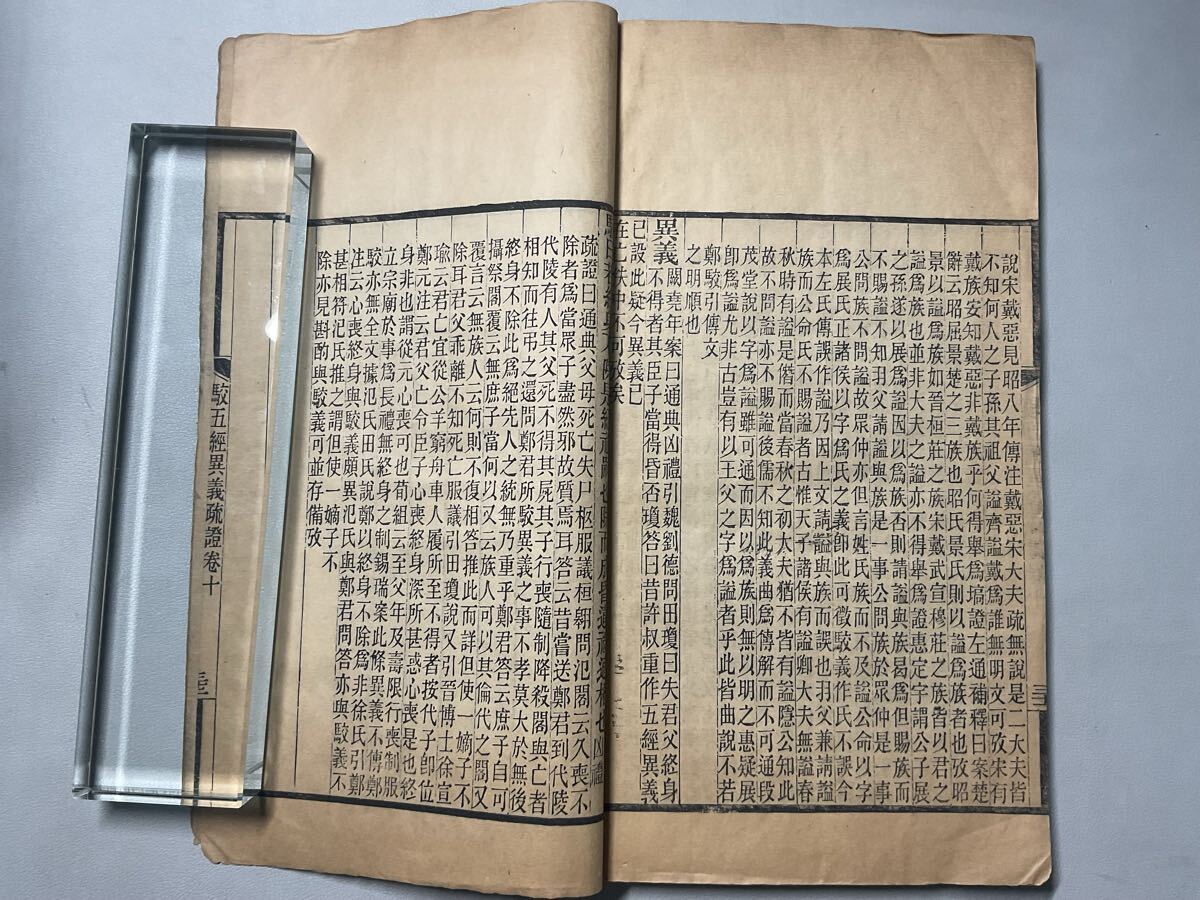 說宋戴惡見昭八年傳注戴惡宋大夫疏無說是二大夫皆
不知何人之子孫其祖父謚齊謚戴爲誰無明文可攷宋有
戴族安知戴惡非戴族乎何得舉爲塙證左通補釋曰案楚
辭云昭屈景楚之三族也昭氏景氏則以謚爲族者也攷昭
景以謚爲族如晉桓莊之族宋戴武宣穆莊之族皆以君之
謚爲族也並非大夫之謚亦不得舉爲證惠定宇謂公子展
之孫遂以展爲謚因以爲族否則請謚與族曷爲但賜族而
不賜謚不知羽父請謚與族是一事公問族於眾仲是一事
公問族不問謚故眾仲亦但言姓氏族而不及謚公命以字
爲展氏正諸侯以字爲氏之義卽此可徵駮義作氏不誤今
本左氏傳誤作謚乃因上文請謚與族而誤也羽父兼請謚
族而公命氏不賜謚者古惟天子諸侯有謚卿大夫無謚春
秋時有謚是僭而當春秋之初大夫猶不皆有謚隱公知此
故不問謚亦不賜謚後儒不知此義曲爲傅解而不可通段
茂堂說以字爲謚雖可通而因以爲族則無以明之惠疑展
卽爲謚尤非古豈有以王父之字爲謚者乎此皆曲說不若
鄭駮引傳文
之明順也
異義闕堯年案曰通典凶禮引魏劉德問田瓊曰失君父終身
不得者其臣子當得昏否瓊答曰昔許叔重作五經異義
已設此疑今異義已
在亡佚中不可攷矣
嗣也除而成昏違禮適權也
疏證曰通典父母死亡失尸柩服議桓翱問氾閣云久喪不
除者爲當眾子盡然邪故質焉耳答云昔嘗送鄭君到代陵
代陵有人其父死不得其屍其子行喪隨制降殺閣與亡者
相知而往弔之還問鄭君所駮異義之事不孝莫大於無後
終身不除此爲絕先人之統無乃重乎鄭君答云庶子自可
攝祭閣覆云無庶子當何以又云族人可以其倫代之閣又
覆言云無族人云何則不復相答推此而詳但使一嫡子不
除耳君父乖離不知死亡服議引田瓊說又引晉博士徐宣
瑜云君亡宜從公羊窮舟車人履所至不得者按代子卽位
鄭元注云君父亡令臣子心喪終身深所甚惑心喪是也終
身非也謂從元心喪可也荀組云至父年及壽限行喪制服
立宗廟於事爲長禮無終身之制錫瑞案此條異義不傳鄭
駮亦無全文據氾氏田氏說鄭以終身不除爲非徐氏引鄭
注云心喪終身與駮義頗異氾氏與鄭君問答亦與駮義不
甚相符氾氏推之謂但使一嫡子不
除亦見斟酌與駮義可並存備攷
駮五經異義疏證卷十